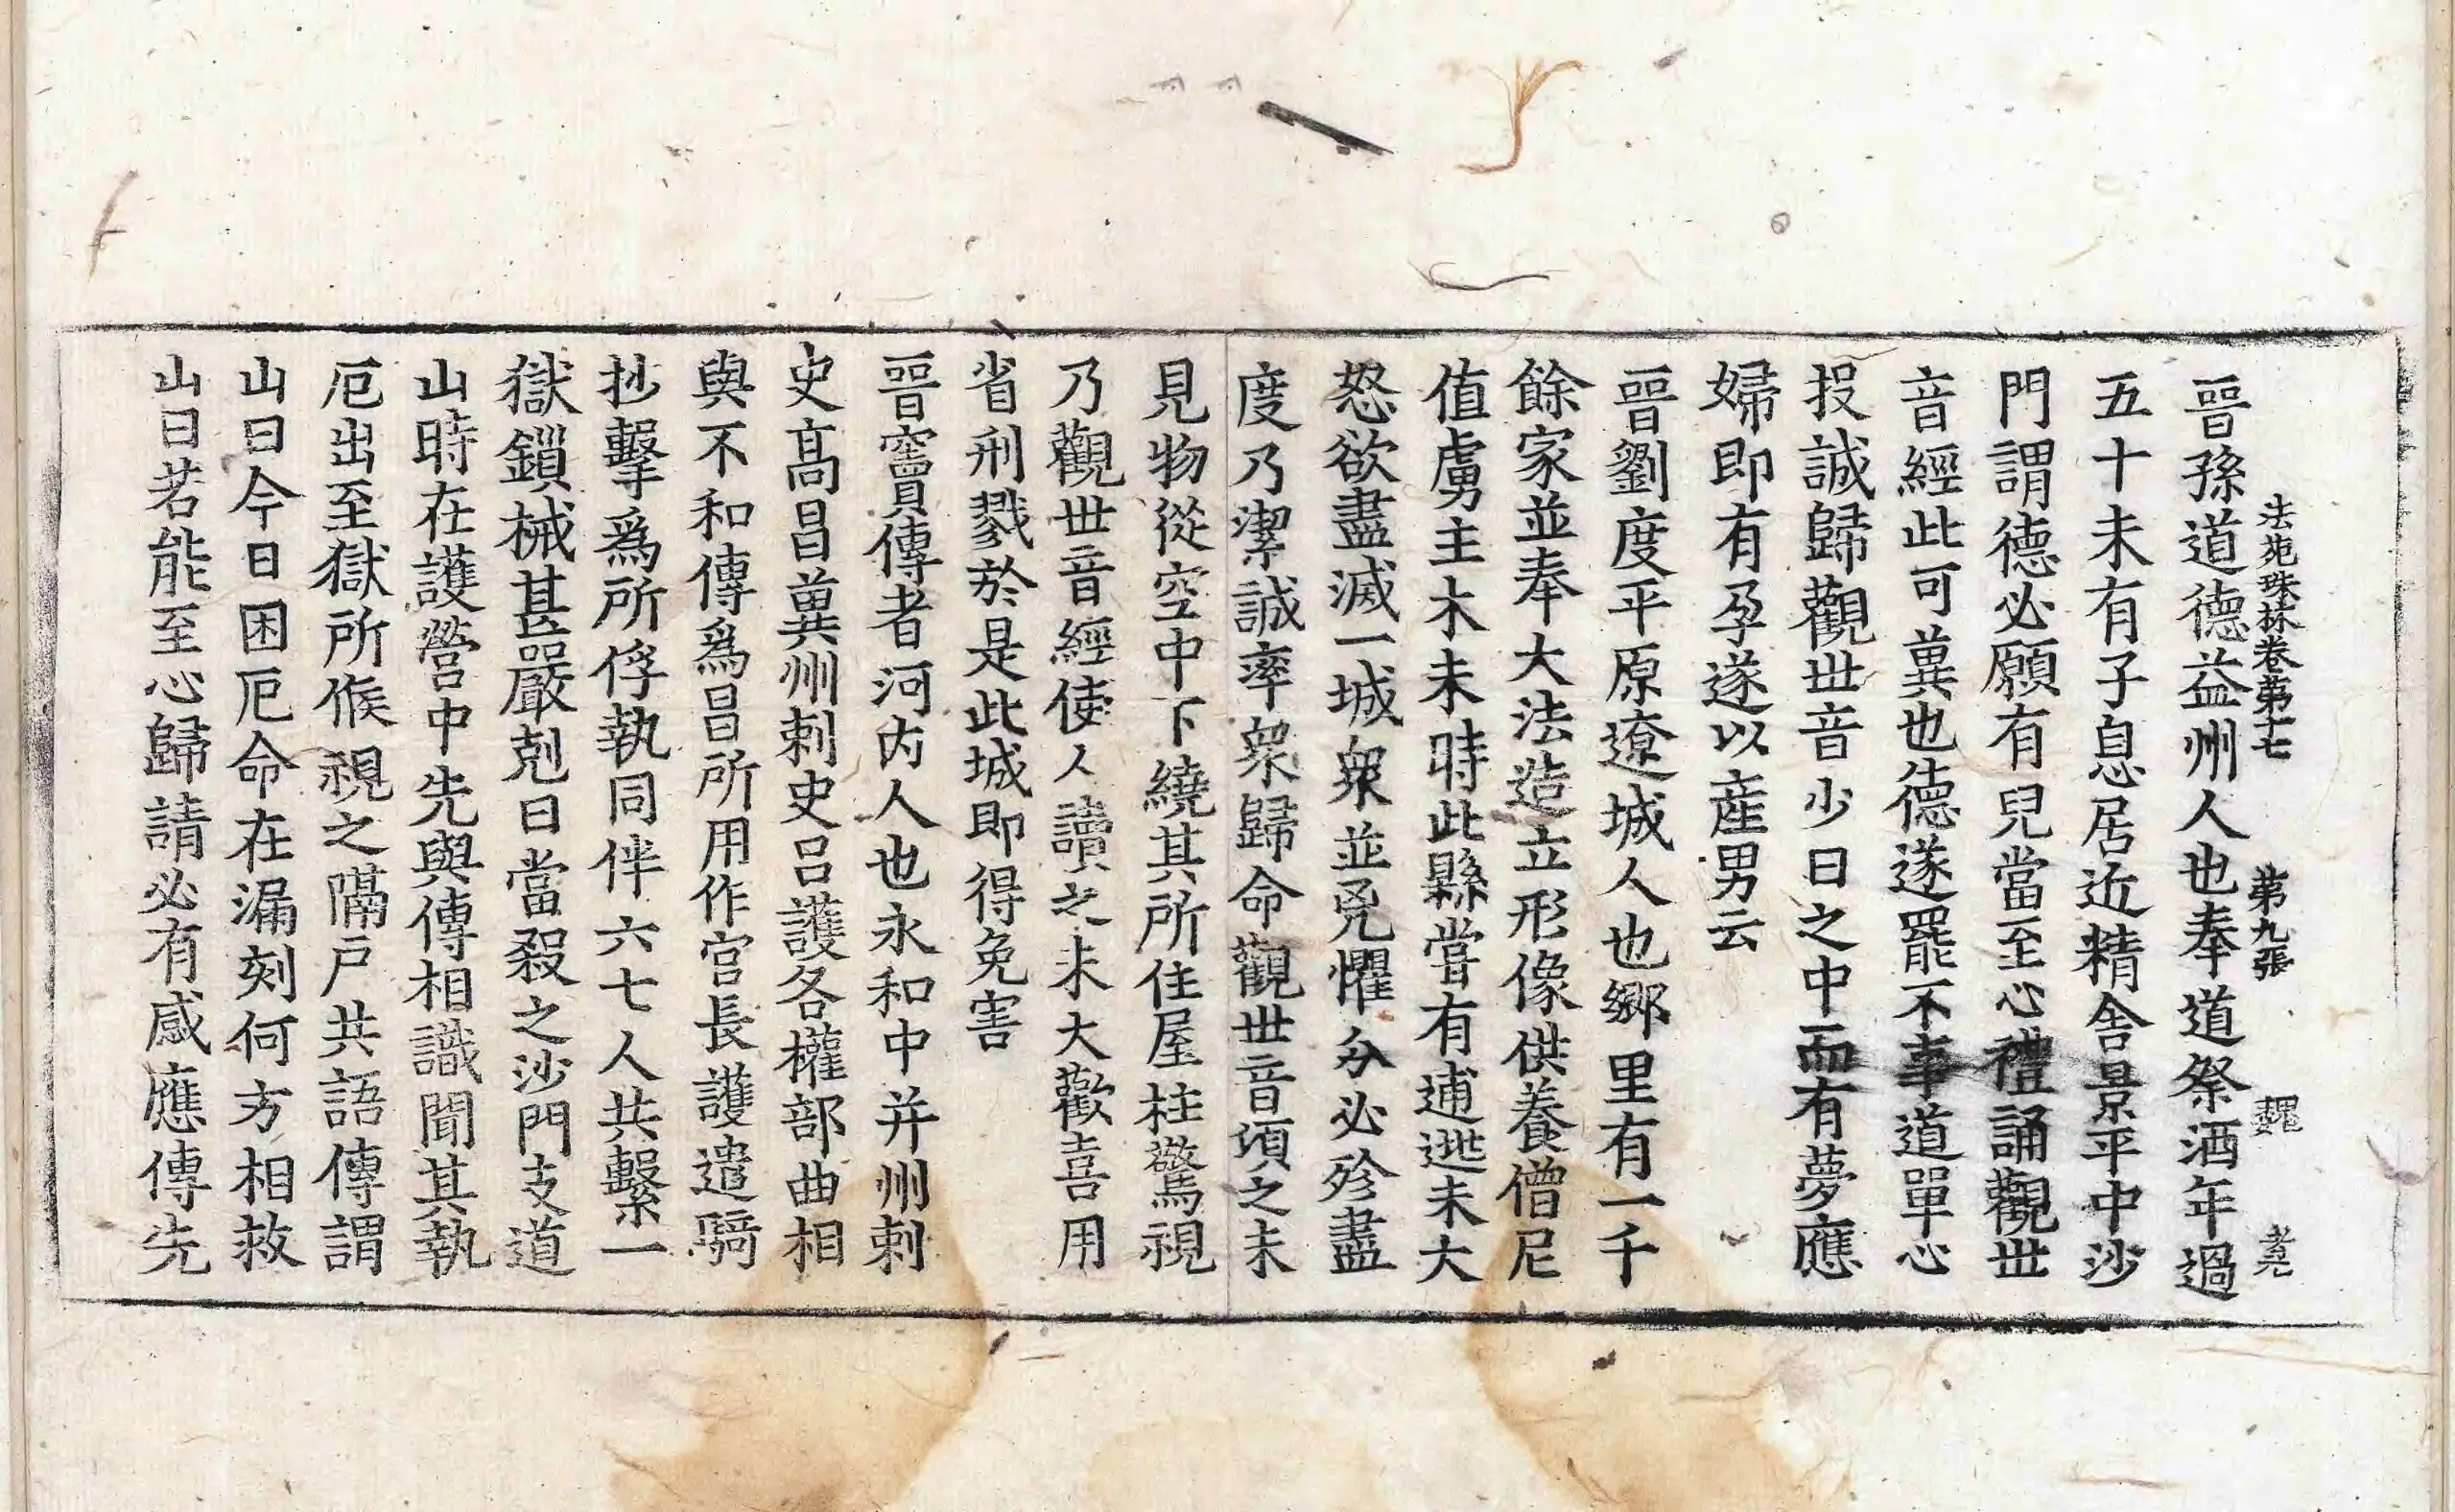 法苑珠林卷第十七 第九張 魏
晉孫道德益州人也奉道祭酒年過
五十未有子息居近精舍景平中沙
門謂德必願有兒當至心禮誦觀世
音經此可冀也德遂罷不事道單心
投誠歸觀世音少日之中而有夢應
婦即有孕遂以產男云
晉劉度平原遼城人也鄉里有一千
餘家並奉大法造立形像供養僧尼
值虜主木末時此縣嘗有逋逃末大
怒欲盡滅一城衆並兇懼分必殄盡
度乃潔誠率衆歸命觀世音頃之末
見物從空中下繞其所住屋柱驚視
乃觀世音經使人讀之末大歡喜用
省刑戮於是此城即得免害
晉竇傳者河內人也永和中并州刺
史高昌冀州刺史呂護各權部曲相
與不和傳爲昌所用作官長護遣騎
抄擊爲所俘執同伴六七人共繫一
獄鎖械甚嚴剋日當殺之沙門支道
山時在護營中先與傳相識聞其執
厄出至獄所候視之隔戶共語傳謂
山曰今日困厄命在漏刻何方相救
山曰若能至心歸請必有感應傳先